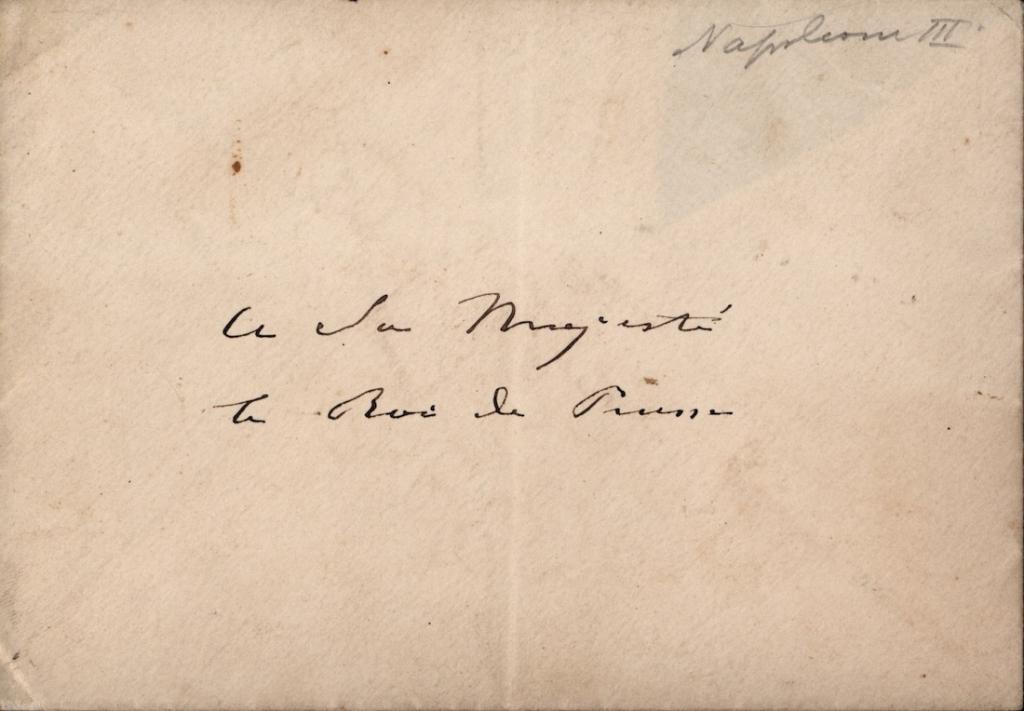 Napoleone III
A Sa Majesté
le Roi de Prusse